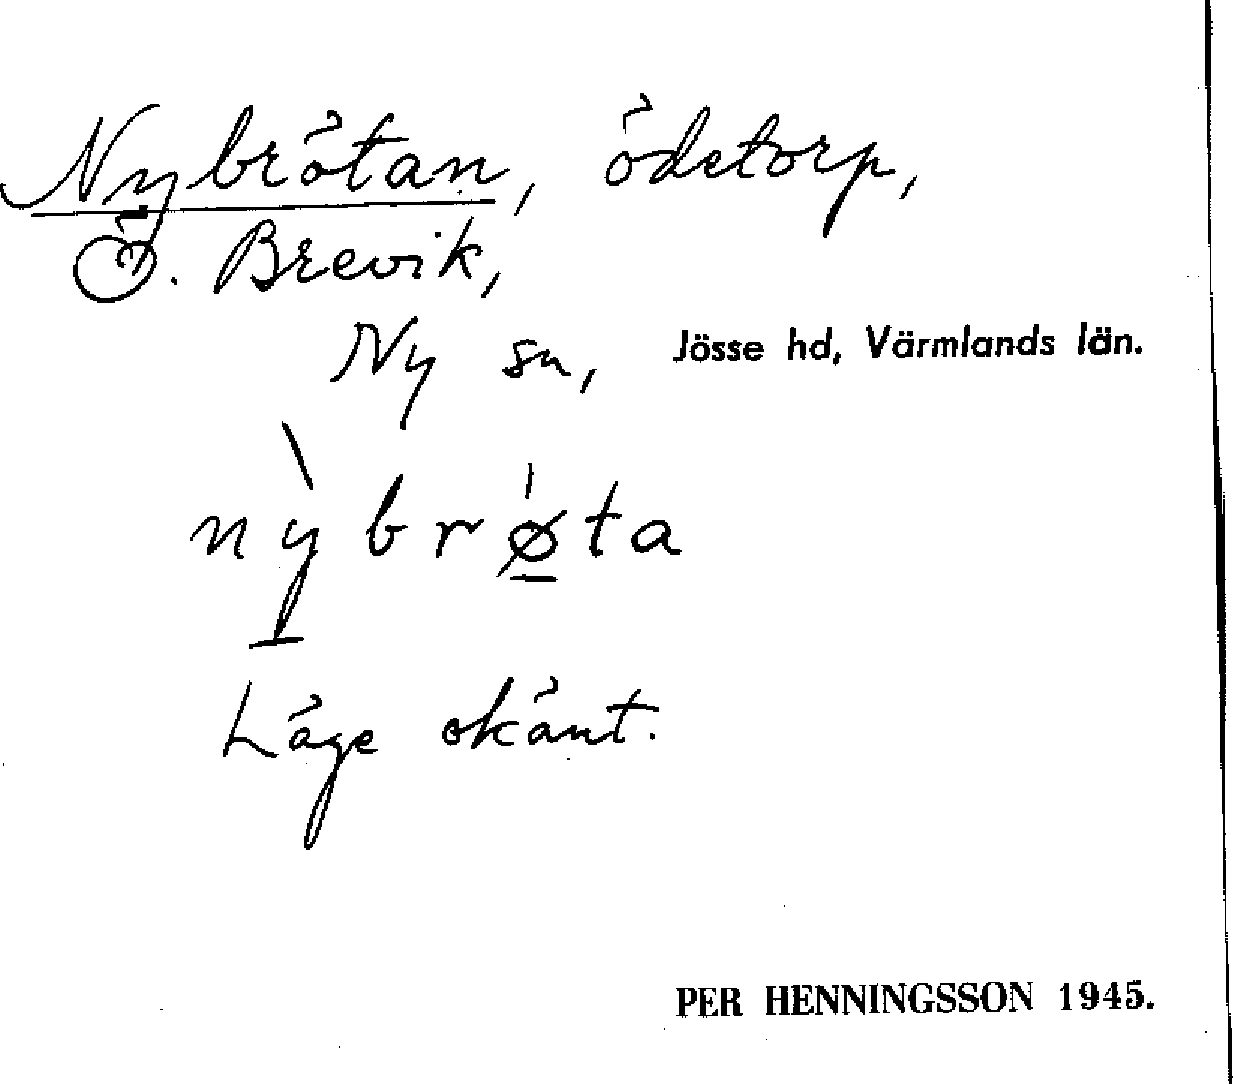 Nybrötan, ödetorp,
Ö. Brevik,
Ny sn, Jösse hd, Värmlands län.
nỳbrǿ̲ta
Läge okänt.
PER HENNINGSSON 1945.